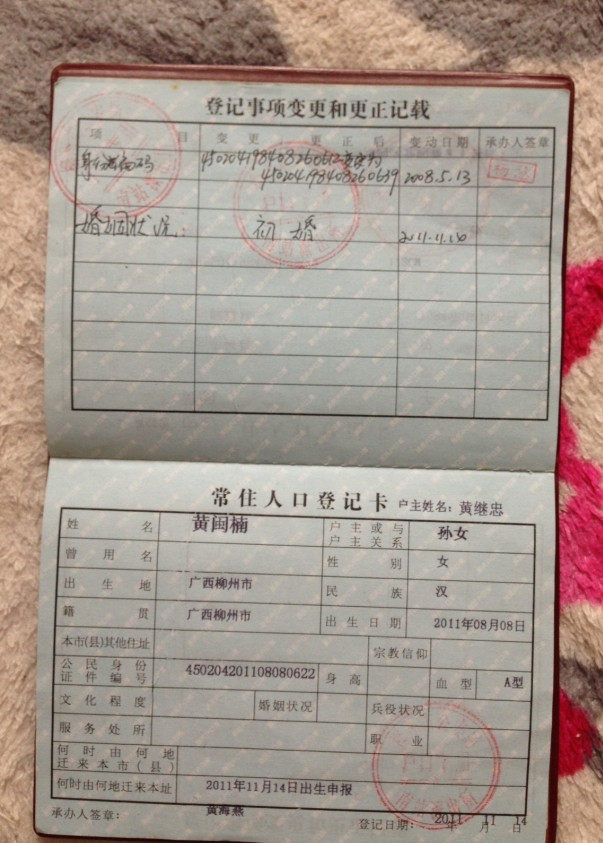 登记事项变更和更正记载
项 目 变更、更正后 变动日期 承办人签章
身份证编码 450204198408260612变更为
450204198408260639 2008.5.13
婚姻状况: 初婚 2011.11.14
常住人口登记卡 户主姓名: 黄继忠
姓名 黄闽楠 户主或与户主关系 孙女
曾用名 性别 女
出生地 广西柳州市 民族 汉
籍贯 广西柳州市 出生日期 2011年08月08日
本市(县)其他住址 宗教信仰
公民身份证件编号 450204201108080622 身高 血型 A型
文化程度 婚姻状况 兵役状况
服务处所 职业
何时由何地迁来本市(县)
何时由何地迁来本址 2011年11月14日出生申报
承办人签章: 黄海燕 登记日期: 2011年11月14日